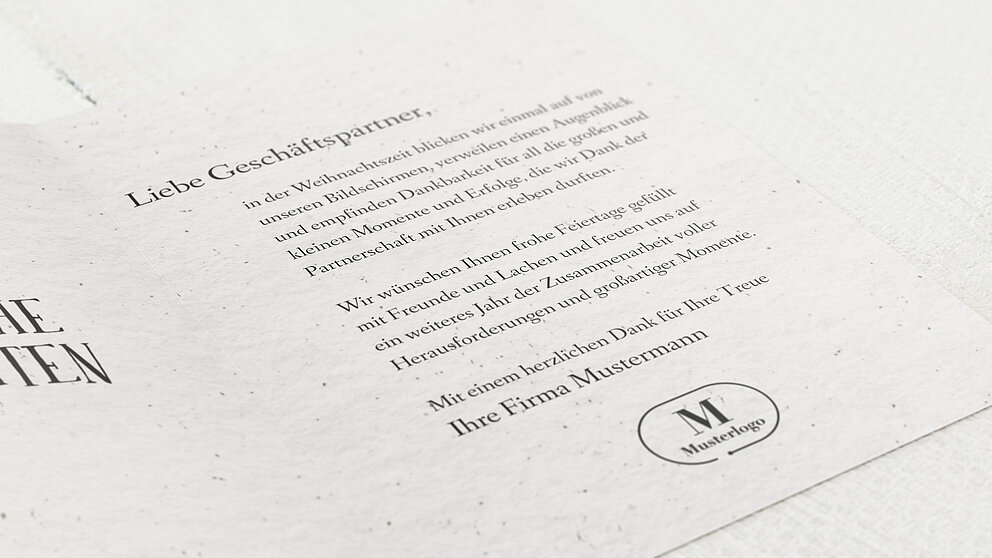 HE
TEN
Liebe Geschäftspartner,
in der Weihnachtszeit blicken wir einmal auf von
unseren Bildschirmen, verweilen einen Augenblick
und empfinden Dankbarkeit für all die großen und
kleinen Momente und Erfolge, die wir Dank der
Partnerschaft mit Ihnen erleben durften.
Wir wünschen Ihnen frohe Feiertage gefüllt
mit Freunde und Lachen und freuen uns auf
ein weiteres Jahr der Zusammenarbeit voller
Herausforderungen und großartiger Momente.
Mit einem herzlichen Dank für Ihre Treue
Ihre Firma Mustermann
M
Musterlogo